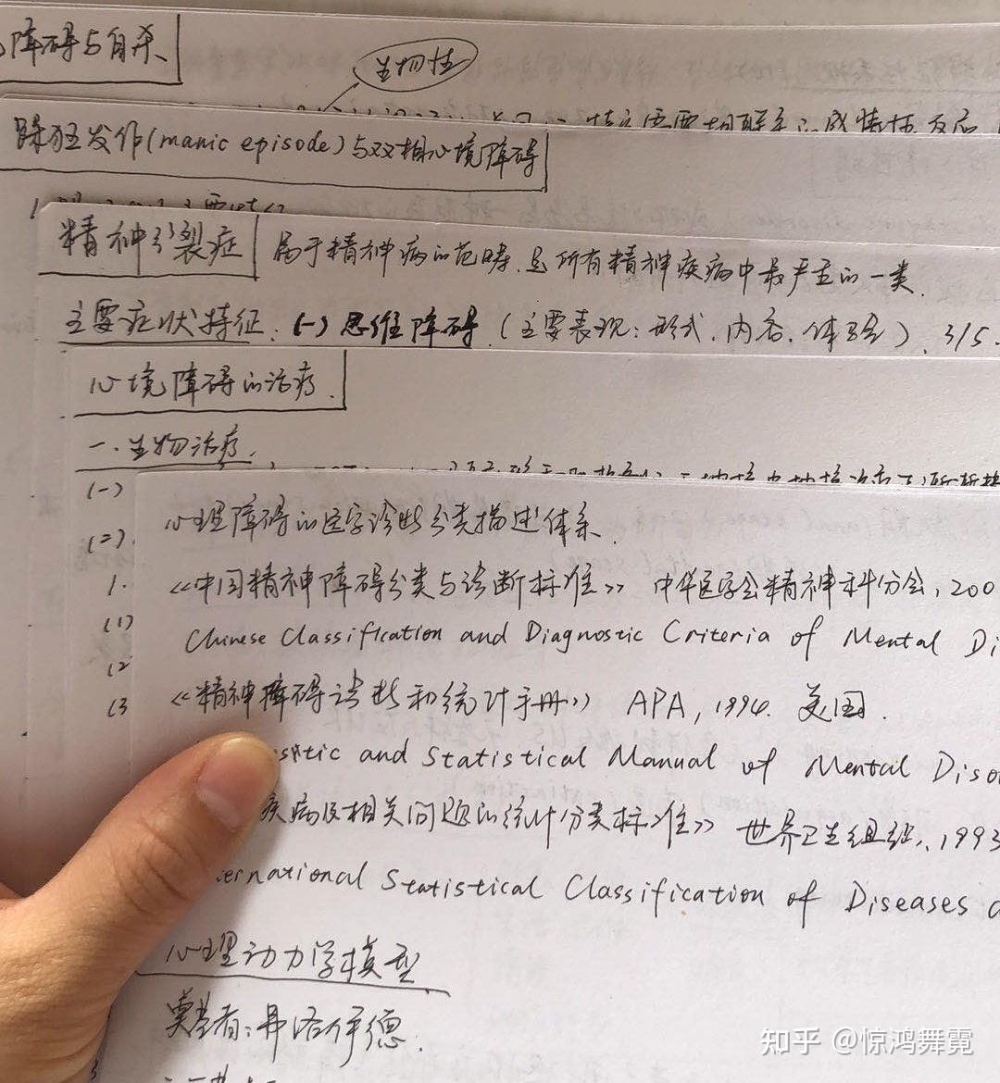 障碍与自杀.
生物性
躁狂发作(manic episode)与双相心境障碍
精神分裂症 属于精神病的范畴.是所有精神疾病中最严重的一类.
主要症状特征.(一)思维障碍.(主要表现:形式.内容.体验).3/5.
心境障碍的治疗.
一.生物治疗.
(一)
(二)
1.
(1)
(2
(3
心理障碍的医学诊断分类描述体系.
《中国精神障碍分类与诊断标准》 中华医学会精神科分会,200
Chinese Classification and Diagnostic Criteria of Mental Di
《精神障碍诊断和统计手册》 APA, 1994. 美国.
stic and Statistical Manual of Mental Disor
疾病及相关问题的统计分类标准》 世界卫生组织.,1993
ernational Statistical Classification of Diseases a
心理动力学模型
奠基者:弗洛伊德.
知乎 @惊鸿舞霓